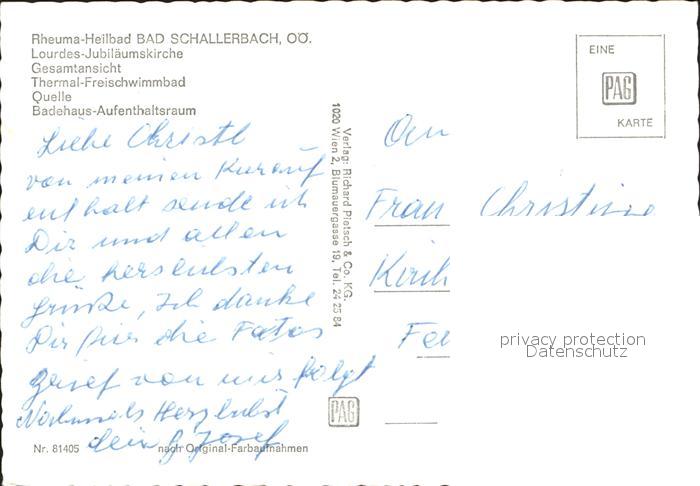 Rheuma-Heilbad BAD SCHALLERBACH, OÖ.
Lourdes-Jubiläumskirche
Gesamtansicht
Thermal-Freischwimmbad
Quelle
Badehaus-Aufenthaltsraum
Liebe Christl
von meinen Kurauf
enthalt sende ich
Dir und allen
die herzlichsten
Grüße, Ich danke
Dir für die Fotos
Brief von mir folgt
Nochmals Herzlichst
dein Josef
Nr. 81405
nach Original-Farbaufnahmen
Verlag: Richard Pietsch & Co. KG.
1020 Wien 2, Blumauergasse 19, Tel. 24 25 84
PAG
EINE
PAG
KARTE
An
Frau Christine
Kirch
privacy protection
Datenschutz